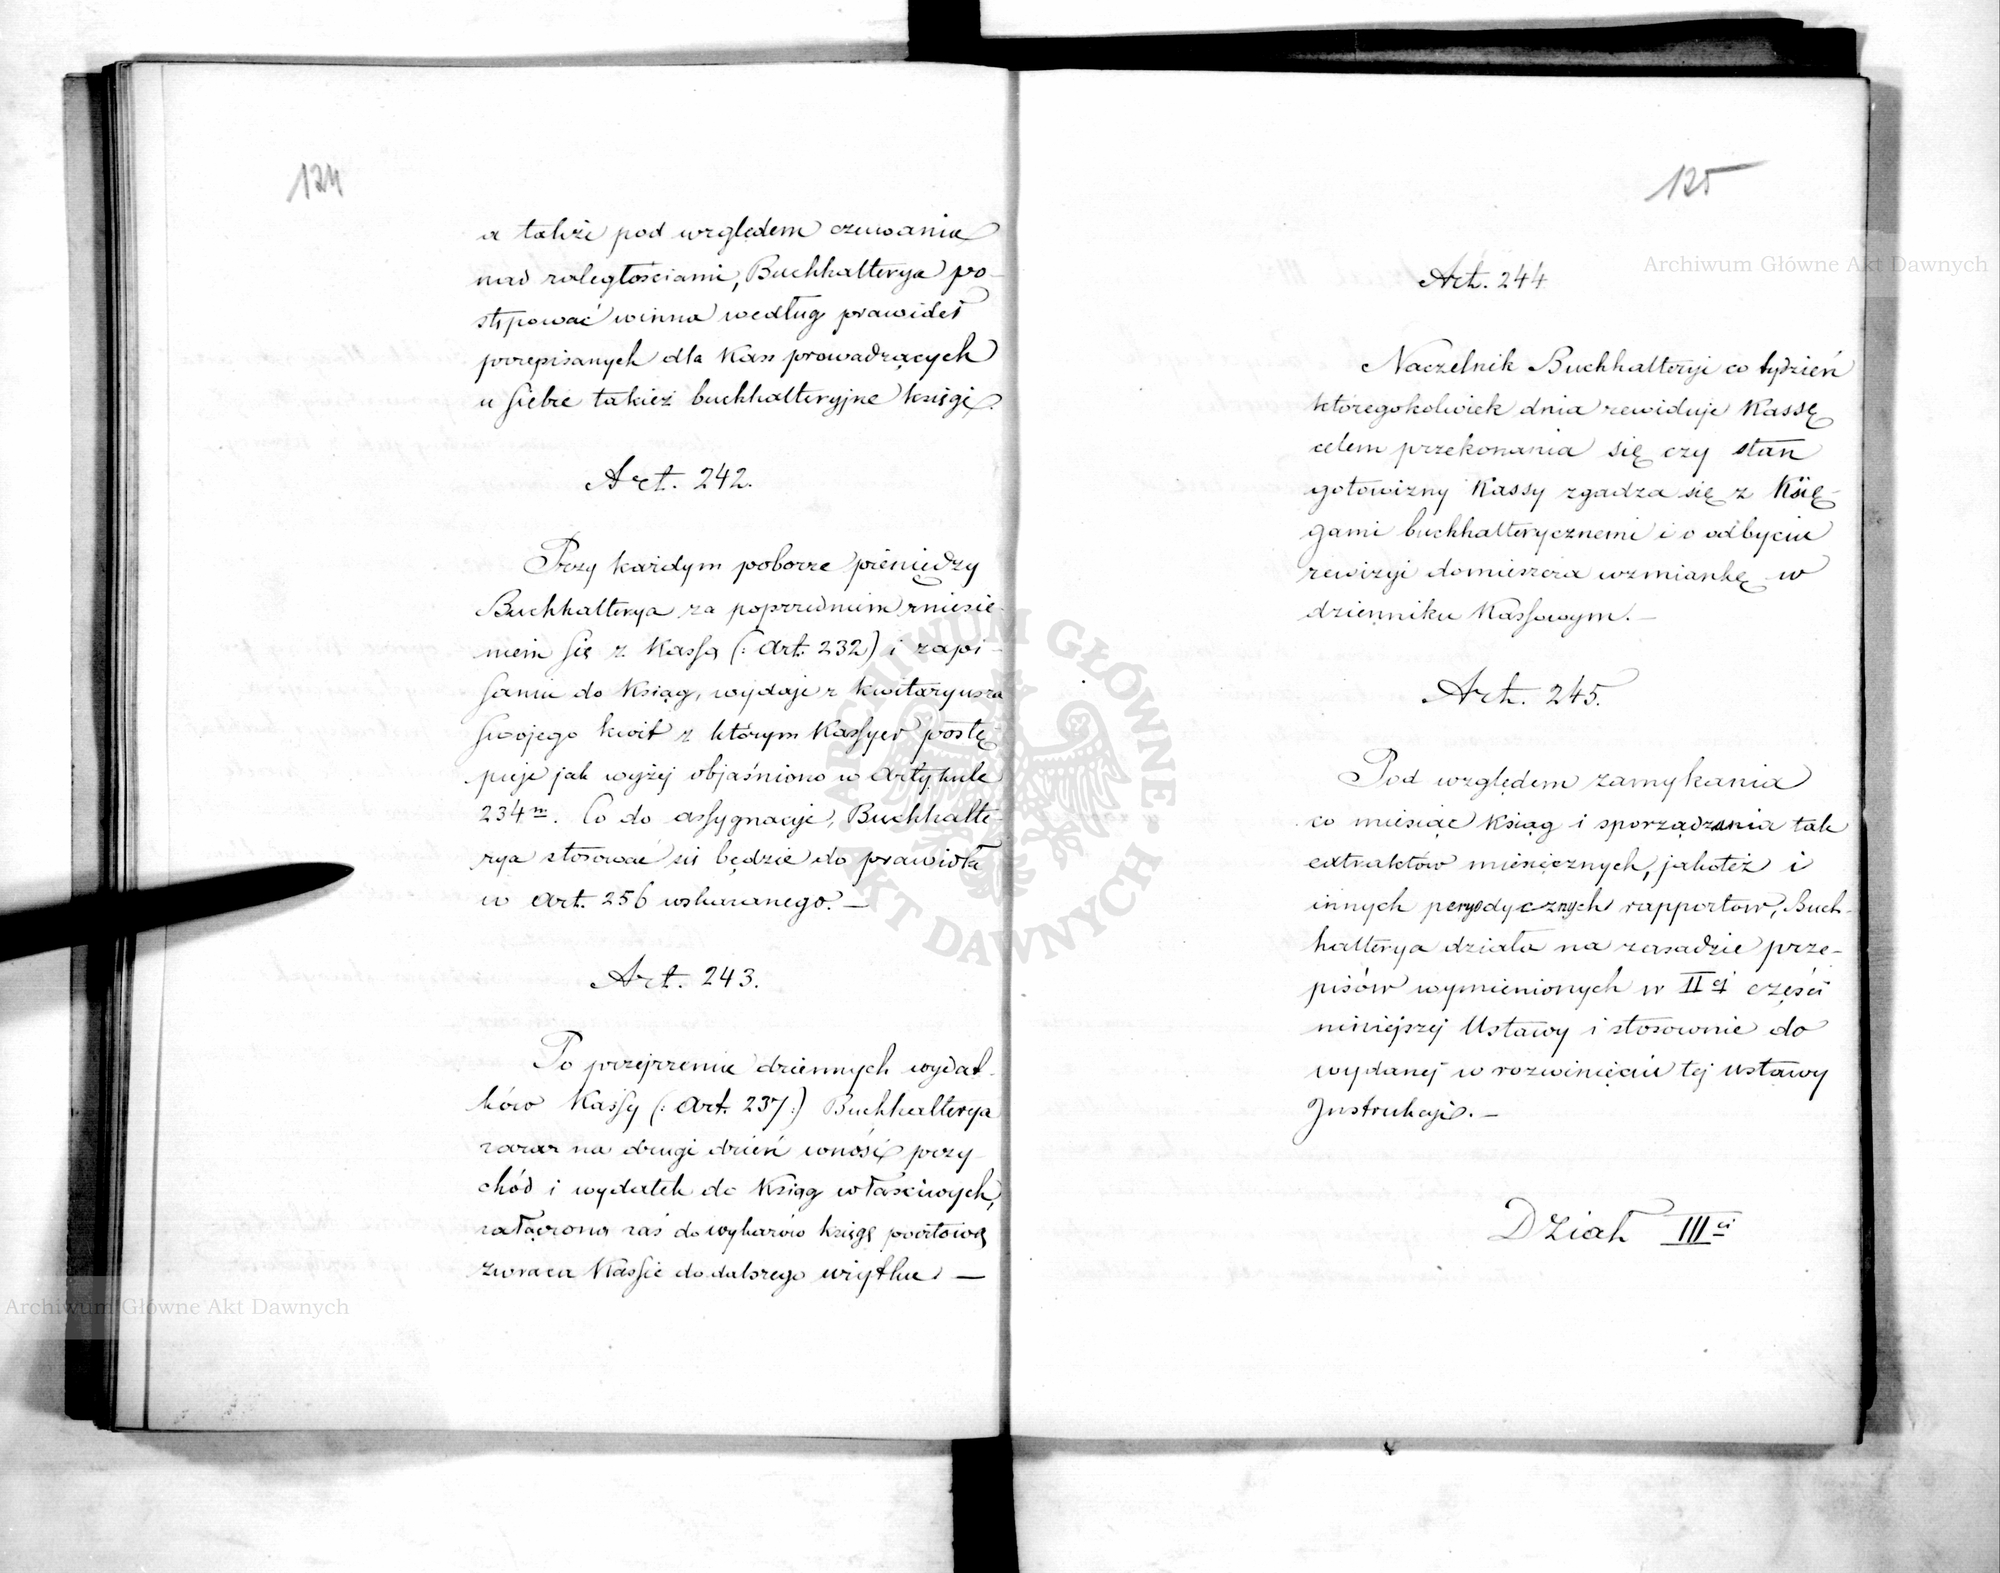 124
a także pod względem czuwania
nad zaległościami, Buchhalterya po-
stępować winna według prawideł
przepisanych dla Kass prowadzących
u siebie takież buchhalteryjne księgi.
Art. 242.
Przy każdym poborze pieniędzy
Buchhalterya za poprzedniem zniesie-
niem się z Kassą (: Art. 232) i zapi-
saniu do Ksiąg, wydaje z kwitaryusza
swojego kwit z którym Kassyer postę-
puje jak wyżej objaśniono w Artykule
234m. Co do assygnacyi, Buchhalte-
rya stosować się będzie do prawidła
w Art. 256 wskazanego. —
Art. 243.
Po przejrzeniu dziennych wydat-
ków Kassy (: Art. 237 :) Buchhalterya
zaraz na drugi dzień wnosi przy-
chód i wydatek do Ksiąg właściwych,
załączoną zaś do wykazów księgę pocztową
zwraca Kassie do dalszego użytku. —
125
Art. 244
Naczelnik Buchhalteryi co tydzień
któregokolwiek dnia rewiduje Kassę
celem przekonania się czy stan
gotowizny Kassy zgadza się z Księ-
gami buchhalterycznemi i o odbyciu
rewizyi domieszcza wzmiankę w
dzienniku Kassowym. —
Art. 245.
Pod względem zamykania
co miesiąc Ksiąg i sporządzania tak
extraktów miesięcznych, jakoteż i
innych peryodycznych rapportow, Buch-
halterya działa na zasadzie prze-
pisów wymienionych w IIej części
niniejszej Ustawy i stosownie do
wydanej w rozwinięciu tej ustawy
Instrukcyi. —
Dział IIIci
Archiwum Główne Akt Dawnych
Archiwum Główne Akt Dawnych
ARCHIWUM GŁÓWNE
AKT DAWNYCH